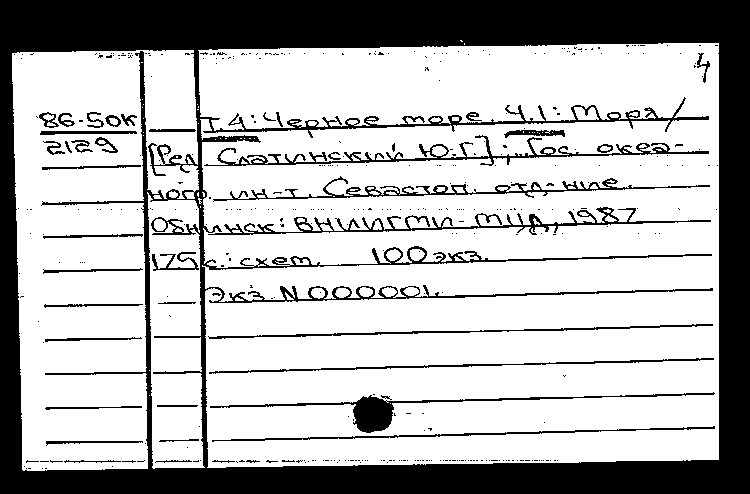 4
86-5ОК Т.4: Черное море. Ч.1: Моря/
2129 [Ред. Слатинский Ю.Г.]; Гос. океа-
ногр. ин-т. Севастоп. отд-ние.
Обнинск: ВНИИГМИ-МЦД, 1987
175 с.: схем. 100 экз.
Экз. N 000001.